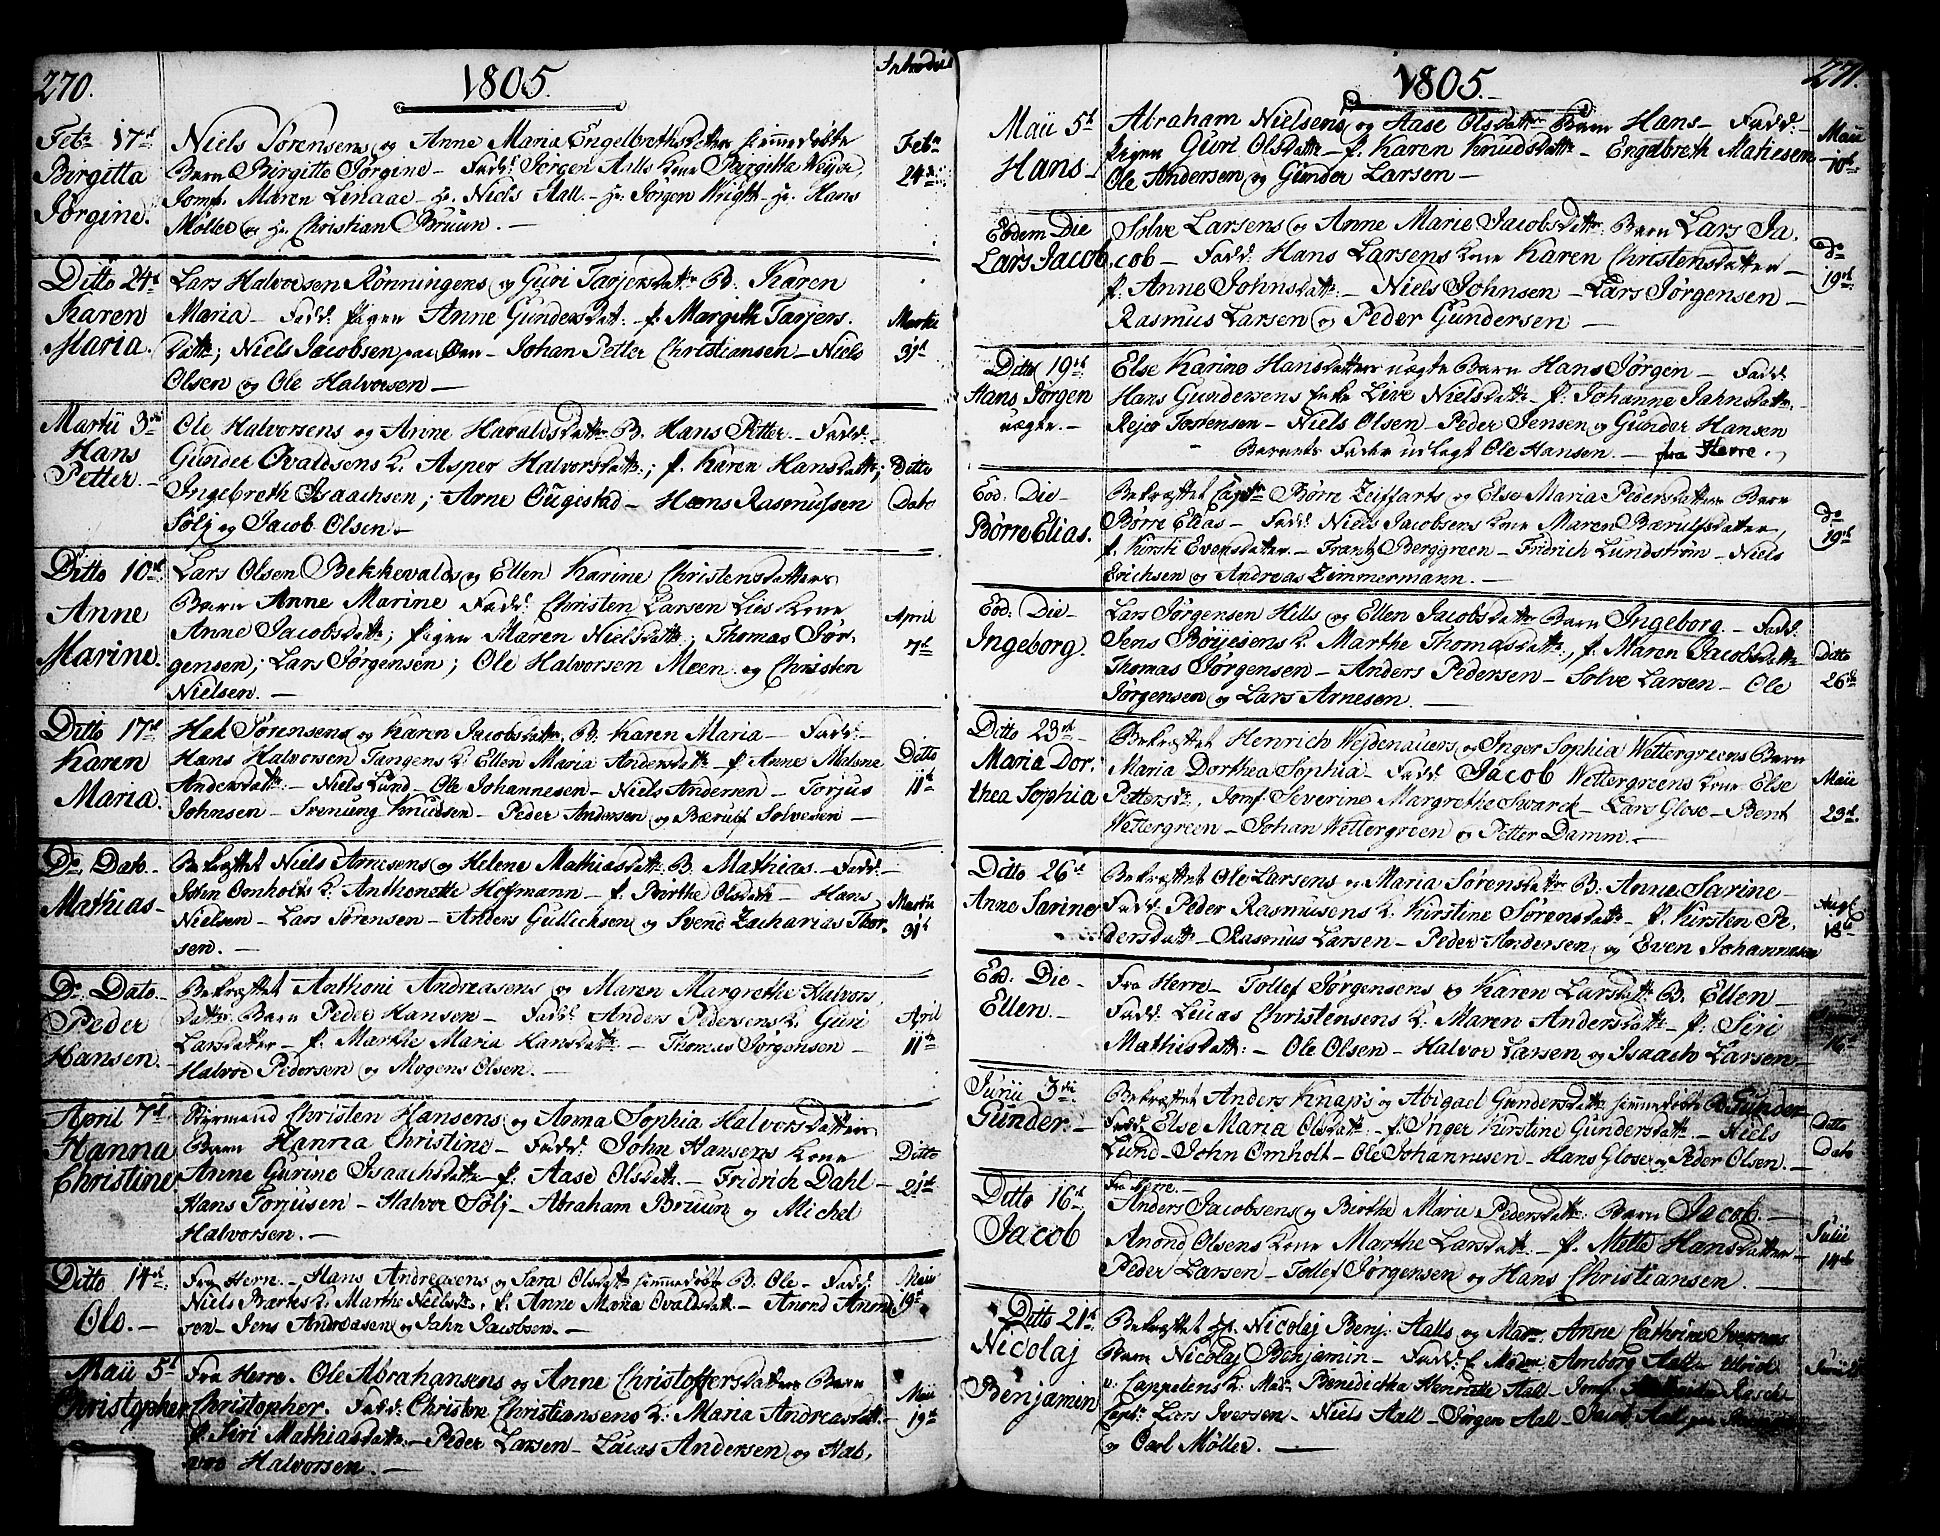 270.
1805.
Introd:
Febr 17d
Birgitta
Jørgine.
Niels Sørensens og Anne Maria Engelbrethsdatter hjemmedøbte
Barn Birgitte Jørgine – Fadd: Jørgen Aalls Kone Birgitta Weyer,
Jomf. Maren Linaae – Hr. Niels Aall – Hr: Jørgen Wright – Hr: Hans
Møller og Hr Christian Bruun. –
Febr
24de
Ditto 24d
Karen
Maria.
Lars Halvorsen Rønningens og Guri Tarjersdattr B: Karen
Maria – Fadd: Pigen Anne Gundersdat: – P. Margith Tarjers.
datt; Niels Jacobsen paa Øen – Johan Petter Christiansen – Niels
Olsen og Ole Halvorsen –
Martii
31d
Martii 3die
Hans
Petter. –
Ole Halvorsens og Anne Haraldsdattr B. Hans Petter – Fadd: –
Gunder Ovaldsens K. Aspeo Halvorsdattr; P. Karen Hansdattr;
Ingebreth Isaachsen; Arne Ougistad – Hans Rasmussen
Sølj og Jacob Olsen –
Ditto
Dato
Ditto 10d
Anne
Marine.
Lars Olsen Bekkevalds og Ellen Karine Christensdatters
Barn Anne Marine Fadd: Christen Larsen Lies Kone
Anne Jacobsdattr; Pigen Maren Nielsdattr; Thomas Jør-
gensen; Lars Jørgensen; Ole Halvorsen Moen og Christen
Nielsen. –
April
7de
Ditto 17d
Karen
Maria.
Hak Sørensens og Karen Jacobsdattr B. Karen Maria – Fadd: –
Hans Halvorsen Tangens K. Ellen Maria Andersdattr – P. Anne Malene
Andersdattr: – Niels Lund – Ole Johannesen – Niels Andersen – Torjus
Johnsen – Svenung Knudsen – Peder Andersen og Bærulf Sølvesen –
Ditto
11te
Do Dato
Mathias –
Bekræftet Niels Arnesens og Helene Mathiasdatt: B. Mathias – Fadd: –
Søren Omholts K. Anthonette Hofmann – P. Birthe Olsdatt – Hans
Nielsen – Lars Sørensen – Anders Gullichsen og Svend Zacharias Thor-
sen. –
Martii
31d
Do Dato
Peder
Hansen. –
Bekræftet Anthoni Andreasens og Maren Margrethe Halvors
datter Barn Peder Hansen – Fadd: Anders Pedersens K. Guri
Larsdatter – P. Marthe Maria Hansdattr – Thomas Jørgensen –
Halvor Pedersen og Mogens Olsen. –
April
11te
April 7d
Hanna
Christine
Styrmand Christen Hansens og Anna Sophia Halvorsdatters
Barn Hanna Christine – Fadd: John Hansens Kone
Anne Gurine Isaachsdattr – P. Aase Olsdattr. – Fridrich Dahl –
Hans Torjusen – Halvor Sølj – Abraham Bruun og Michel
Halvorsen. –
Ditto
21de
Ditto 14de
Ole. –
Fra Herre. – Hans Andreasens og Sara Olsdattr hjemmedøbte B. Ole – Fadd:
Niels Bærkes K. Marthe Nielsdtr, P. Anne Maria Ovaldsdatt. – Anond Anond-
sen – Jens Andreasen og Jahn Jacobsen. –
Maii
19de
Maii 5d
Christopher
Fra Herre. Ole Abrahamsens og Anne Christoffersdatters Barn
Christopher. Fadd: Christen Christiansens K: Maria Andreasdatt: –
P. Siri Mathiasdattr – Peder Larsen – Lucas Andersen og Hal-
vor Halvorsen. –
Maii
19de
271.
1805.
Maii 5d
Hans –
Abraham Nielsens og Aase Olsdattr Barn Hans – Fadd: –
Pigen Guri Olsdattr – P. Karen Knudsdattr – Engelbreth Matiesen
Ole Andersen og Gunder Larsen –
Maii
10de
Eodem Die
Lars Jacob
Sølve Larsens og Anne Marie Jacobsdatt: Barn Lars Ja-
cob – Fadd: Hans Larsens Kone Karen Christensdatter –
P. Anne Johnsdatt: – Niels Johnsen – Lars Jørgensen –
Rasmus Larsen og Peder Gundersen –
do
19de
Ditto 19de
Hans Jørgen
uægte. –
Else Karine Hansdatters uægte Barn Hans Jørgen – Fadd:
Hans Gundersens Enke Live Nielsdatt: – P. Johanne Jahnsdatt –
Rejer Torstensen – Niels Olsen – Peder Jensen og Gunder Hansen
Barnets Fader udlagt Ole Hansen. – fra Herre.
Eod: Die –
Børre Elias.
Bekræftet Captn Børre Zeiffarts og Else Maria Pedersdatters Barn
Børre Elias – Fadd: Niels Jacobsens Kone Maren Bærulfsdatter,
P. Kirsti Evensdatter – Frantz Berggreen – Fridrich Lundstrøm – Niels
Erichsen og Andreas Zimmermann. –
do
19de
Eod: Die –
Ingeborg.
Lars Jørgensen Hills og Ellen Jacobsdattr Barn Ingeborg. – Fadd:
Jens Bøyesens K. Marthe Thomasdattr, P. Maren Jacobsdattr
Thomas Jørgensen – Anders Pedersen – Sølve Larsen – Ole
Jørgensen og Lars Arnesen. –
Ditto
26de
Ditto 23de –
Maria Dor.
thea Sophia
Bekræftet Henrich Wejdenauers og Inger Sophia Wettergreens Barn
Maria Dorthea Sophia – Fadd: Jacob Wettergreens Kone Else
Pettersdtr, Jomf. Severine Margrethe Swarck – Lars Glose – Bent
Wettergreen – Johan Wettergreen og Petter Damm. –
Maii
23d.
Ditto 26d
Anne Sarine
Bekræftet Ole Larsens og Maria Sørensdattr B: Anne Sarine –
Fadd: Peder Rasmusens K. Kirstine Sørensdattr – P. Kirsten Pe-
dersdattr – Rasmus Larsen – Peder Andersen og Even Johannesen
Augt
18d
Eod: Die –
Ellen. –
Fra Herre – Tollef Jørgensens og Karen Larsdattr B. Ellen –
Fadd: Lucas Christensens K: Maren Andersdattr – P. Siri
Mathisdatt: – Ole Olsen – Halvor Larsen og Isaach Larsen –
16d
Junii 3die
Gunder. –
Bekræftet Anders Knaps og Abigael Gundersdattr hjemmedøbte B. Gunder –
Fadd: Else Maria Olsdattr – P. Inger Kirstine Gundersdattr – Niels
Lund – John Omholt – Ole Johannesen – Hans Glose og Peder Olsen. –
Ditto
Dato
Ditto 16d
Jacob
Fra Herre. –
Anders Jacobsens og Birthe Maria Pedersdatt: Barn Jacob. –
Anond Olsens Kone Marthe Larsdatt: – P. Mette Hansdatter –
Peder Larsen – Tollef Jørgensen og Hans Christiansen. –
Julii
14de
Ditto 21d
Nicolaj
Benjamin
Bekræftet Hr. Nicolaj Benj. Aalls og Mad. Anne Cathrine Iversens
Barn Nicolaj Benjamin – Fadd: Madm Amborg Aall
v: Cappelens K: Mad. Benedichta Henriette Aall – Jomf.
Captn Lars Iversen – Niels Aall – Jørgen Aal – Jacob Aall paa
og Carl Møller. –